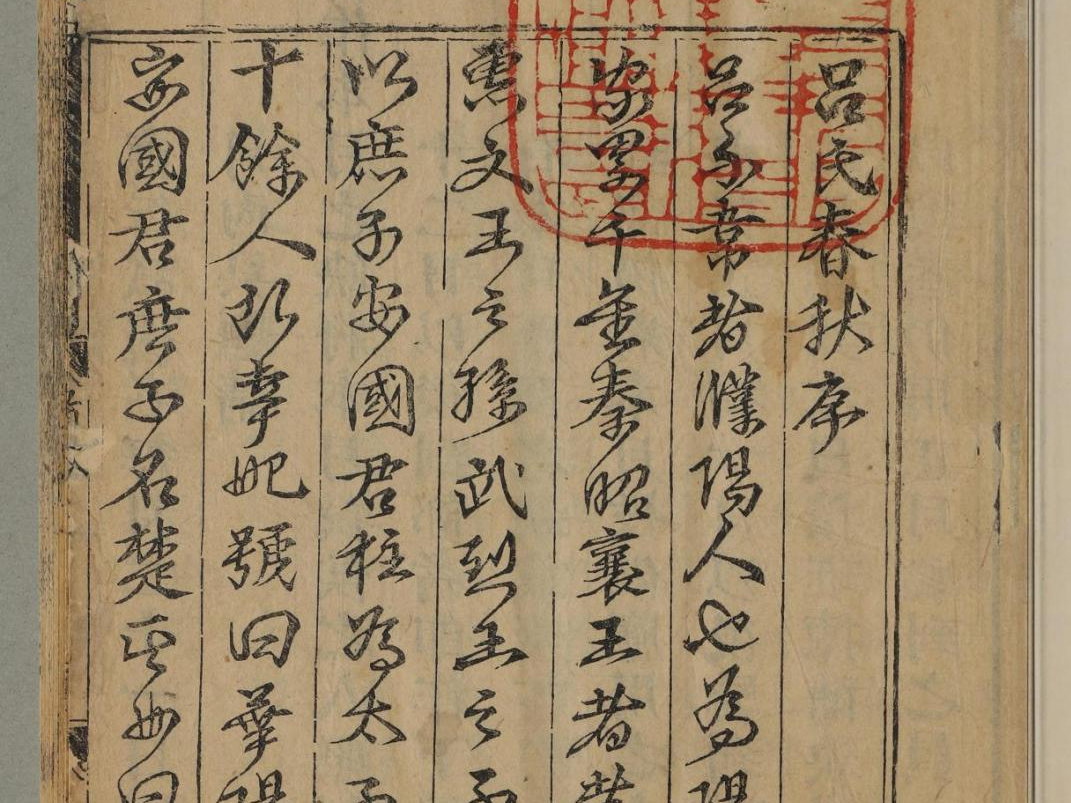 呂氏春秋序
呂不韋者濮陽人也為陽
家累千金秦昭襄王者孝
惠文王之孫武烈王之子
以庶子安國君柱為太子
十餘人所幸妃號曰華陽
安國君庶子名楚其母曰